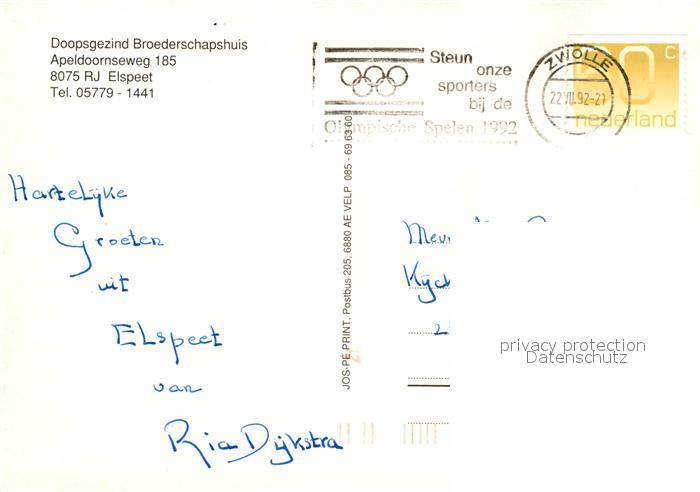 Doopsgezind Broederschapshuis
Apeldoornseweg 185
8075 RJ Elspeet
Tel. 05779 - 1441
Steun
onze
sporters
bij de
Olympische Spelen 1992
ZWOLLE
22 VII.92-21
60 c
nederland
Hartelijke
Groeten
uit
Elspeet
van
Ria Dijkstra
JOS-PÉ PRINT, Postbus 205, 6880 AE VELP 085 - 69 63 60
Mevr.
privacy protection
Datenschutz